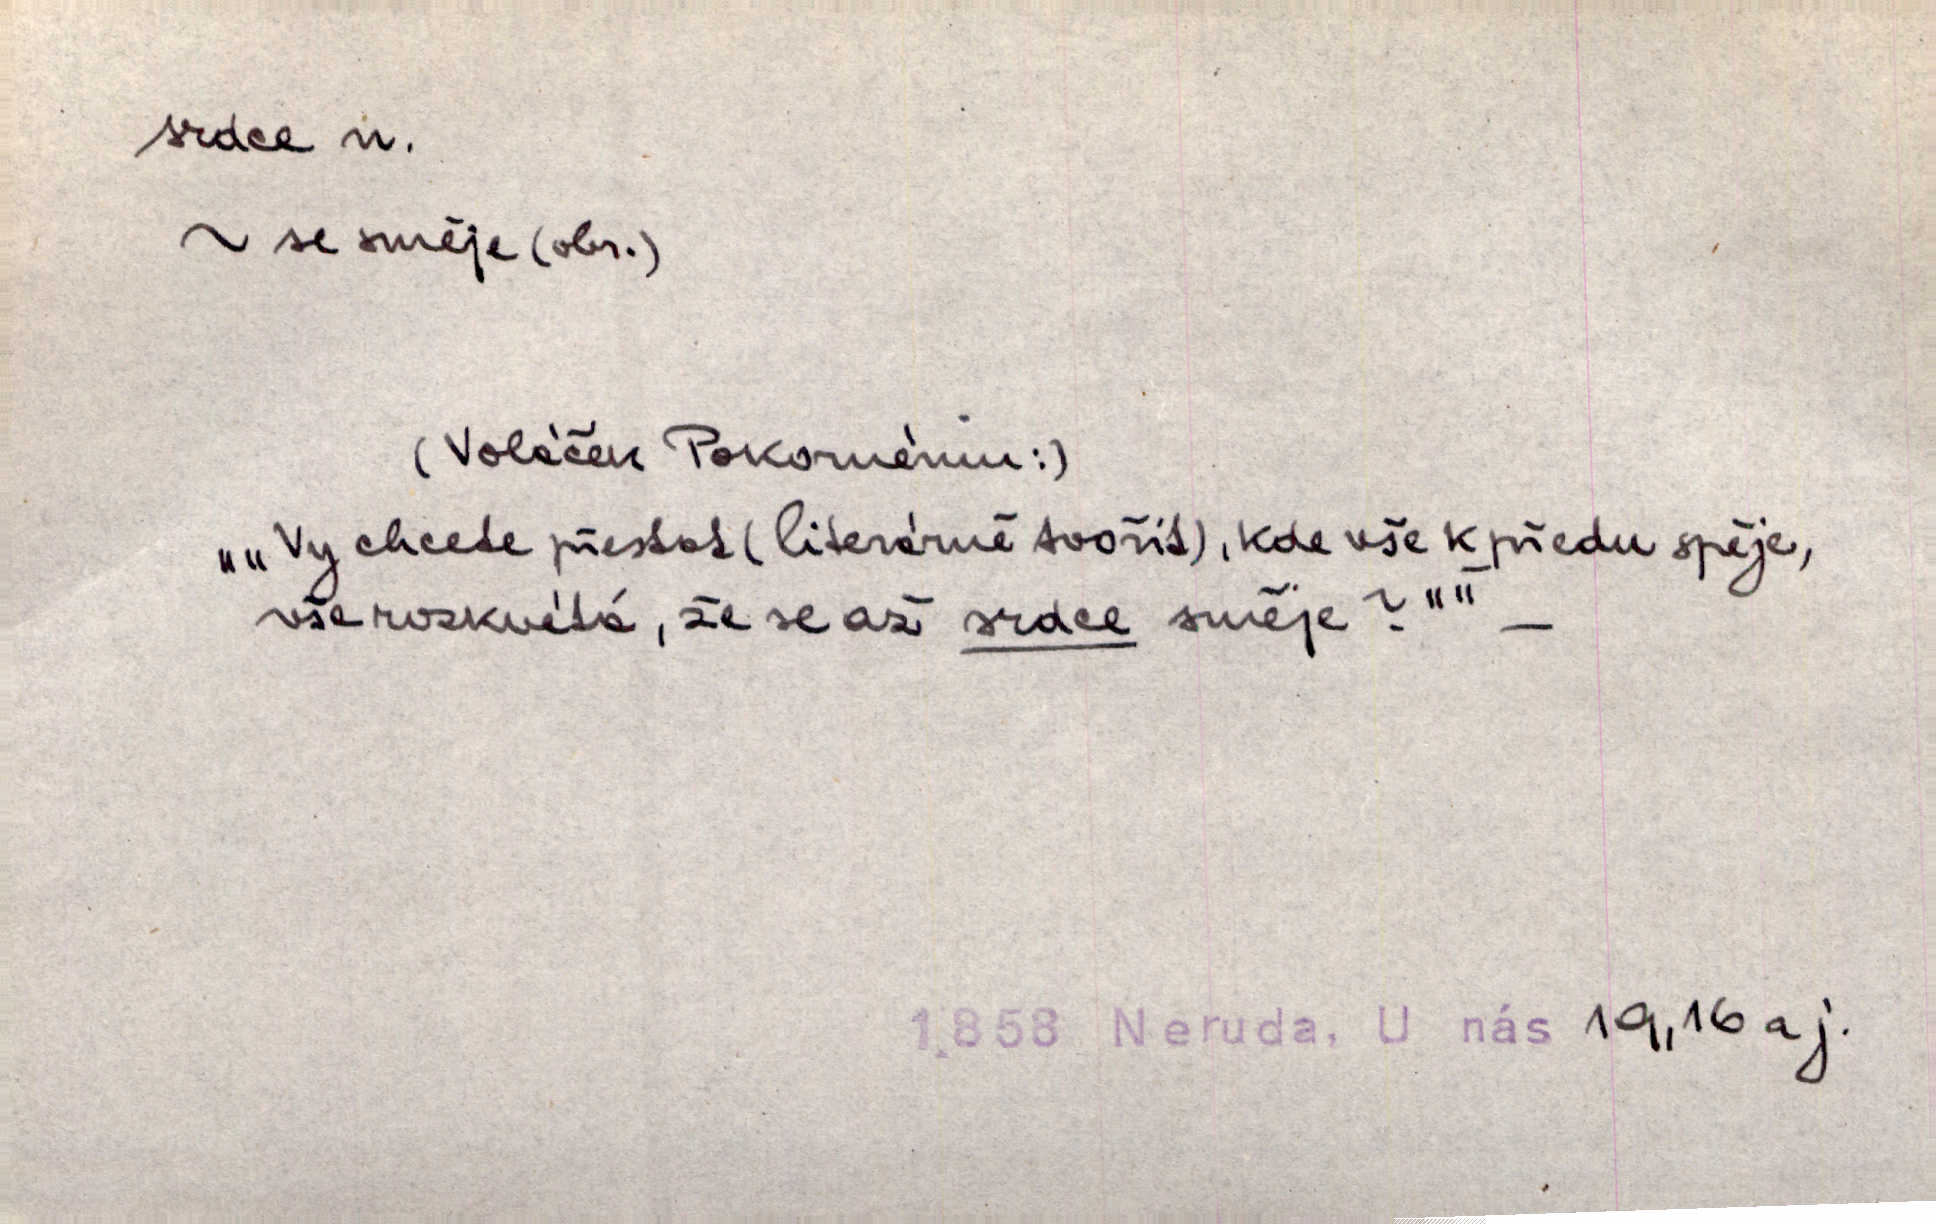 srdce n.
~ se směje (obr.)
(Voláček Pokornému:)
„„Vy chcete přestat (literárně tvořit), kde vše k předu spěje,
vše rozkvétá, že se až srdce směje?““ —
1858 Neruda, U nás 19,16 a j.